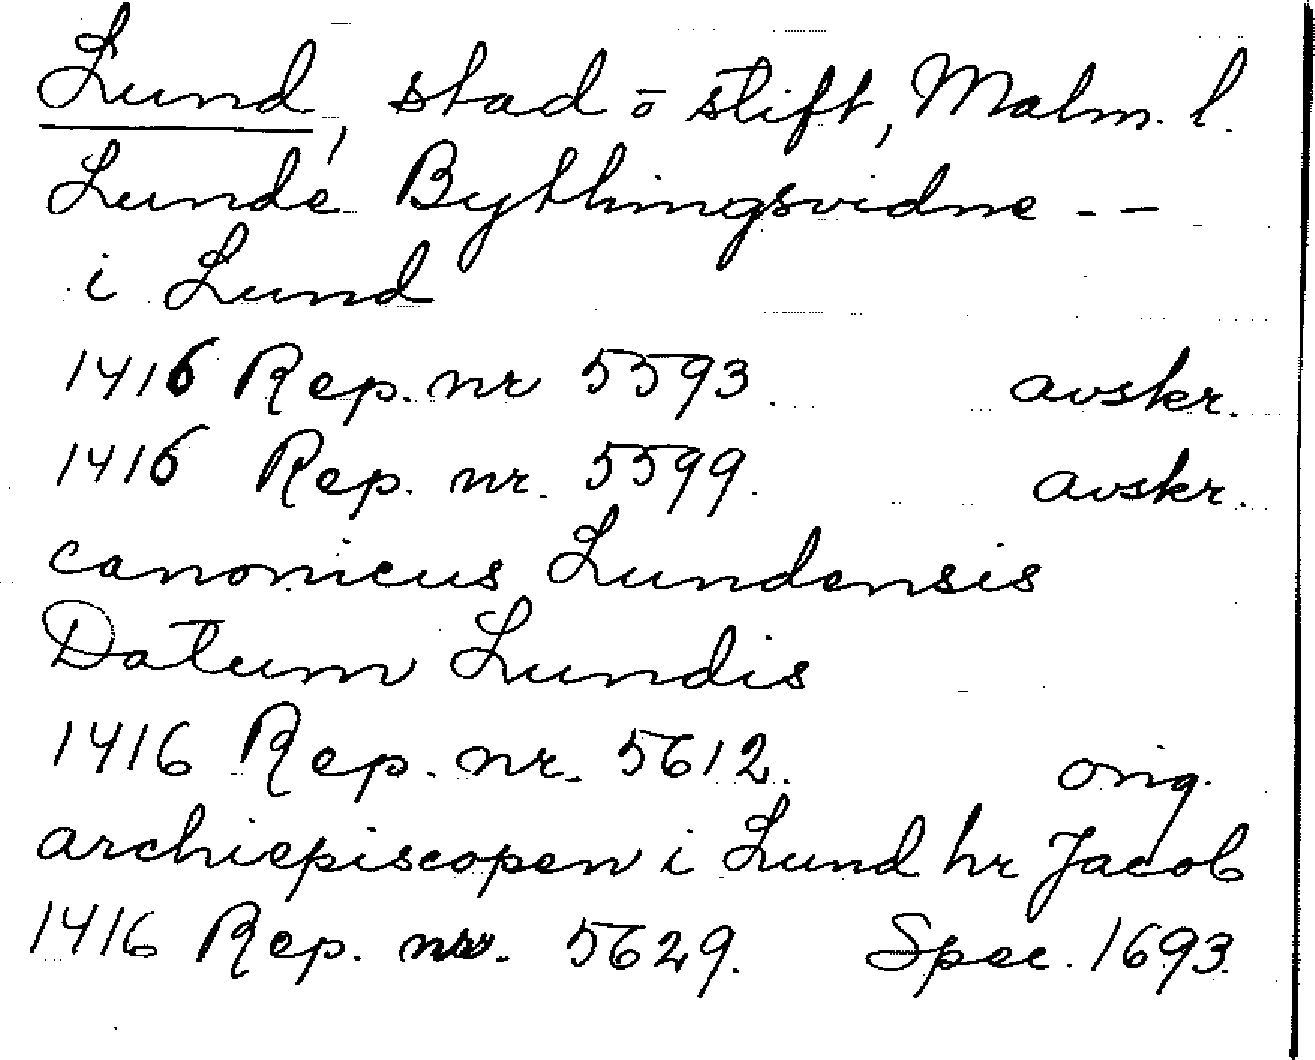 Lund, stad o stift, Malm. l.
Lunde Bythingsvidne - -
i Lund
1416 Rep. nr 5593 avskr.
1416 Rep. nr. 5599. avskr.
canonicus Lundensis
Datum Lundis
1416 Rep. nr. 5612. orig.
archiepiscopen i Lund hr Jacob
1416 Rep. nr. 5629. Spec. 1693.